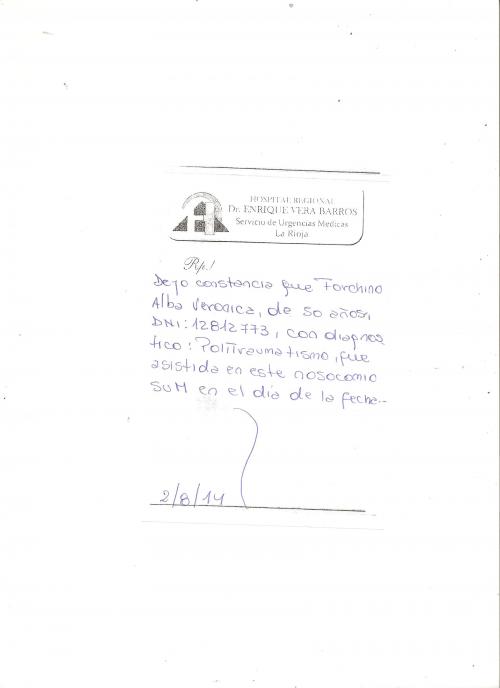 HOSPITAL REGIONAL
Dr. ENRIQUE VERA BARROS
Servicio de Urgencias Medicas
La Rioja
Rp./
Dejo constancia que Forchino
Alba Veronica, de 50 años,
DNI: 12812773, con diagnos
tico: Politraumatismo, fue
asistida en este nosocomio
SUM en el día de la fecha..
2/8/14